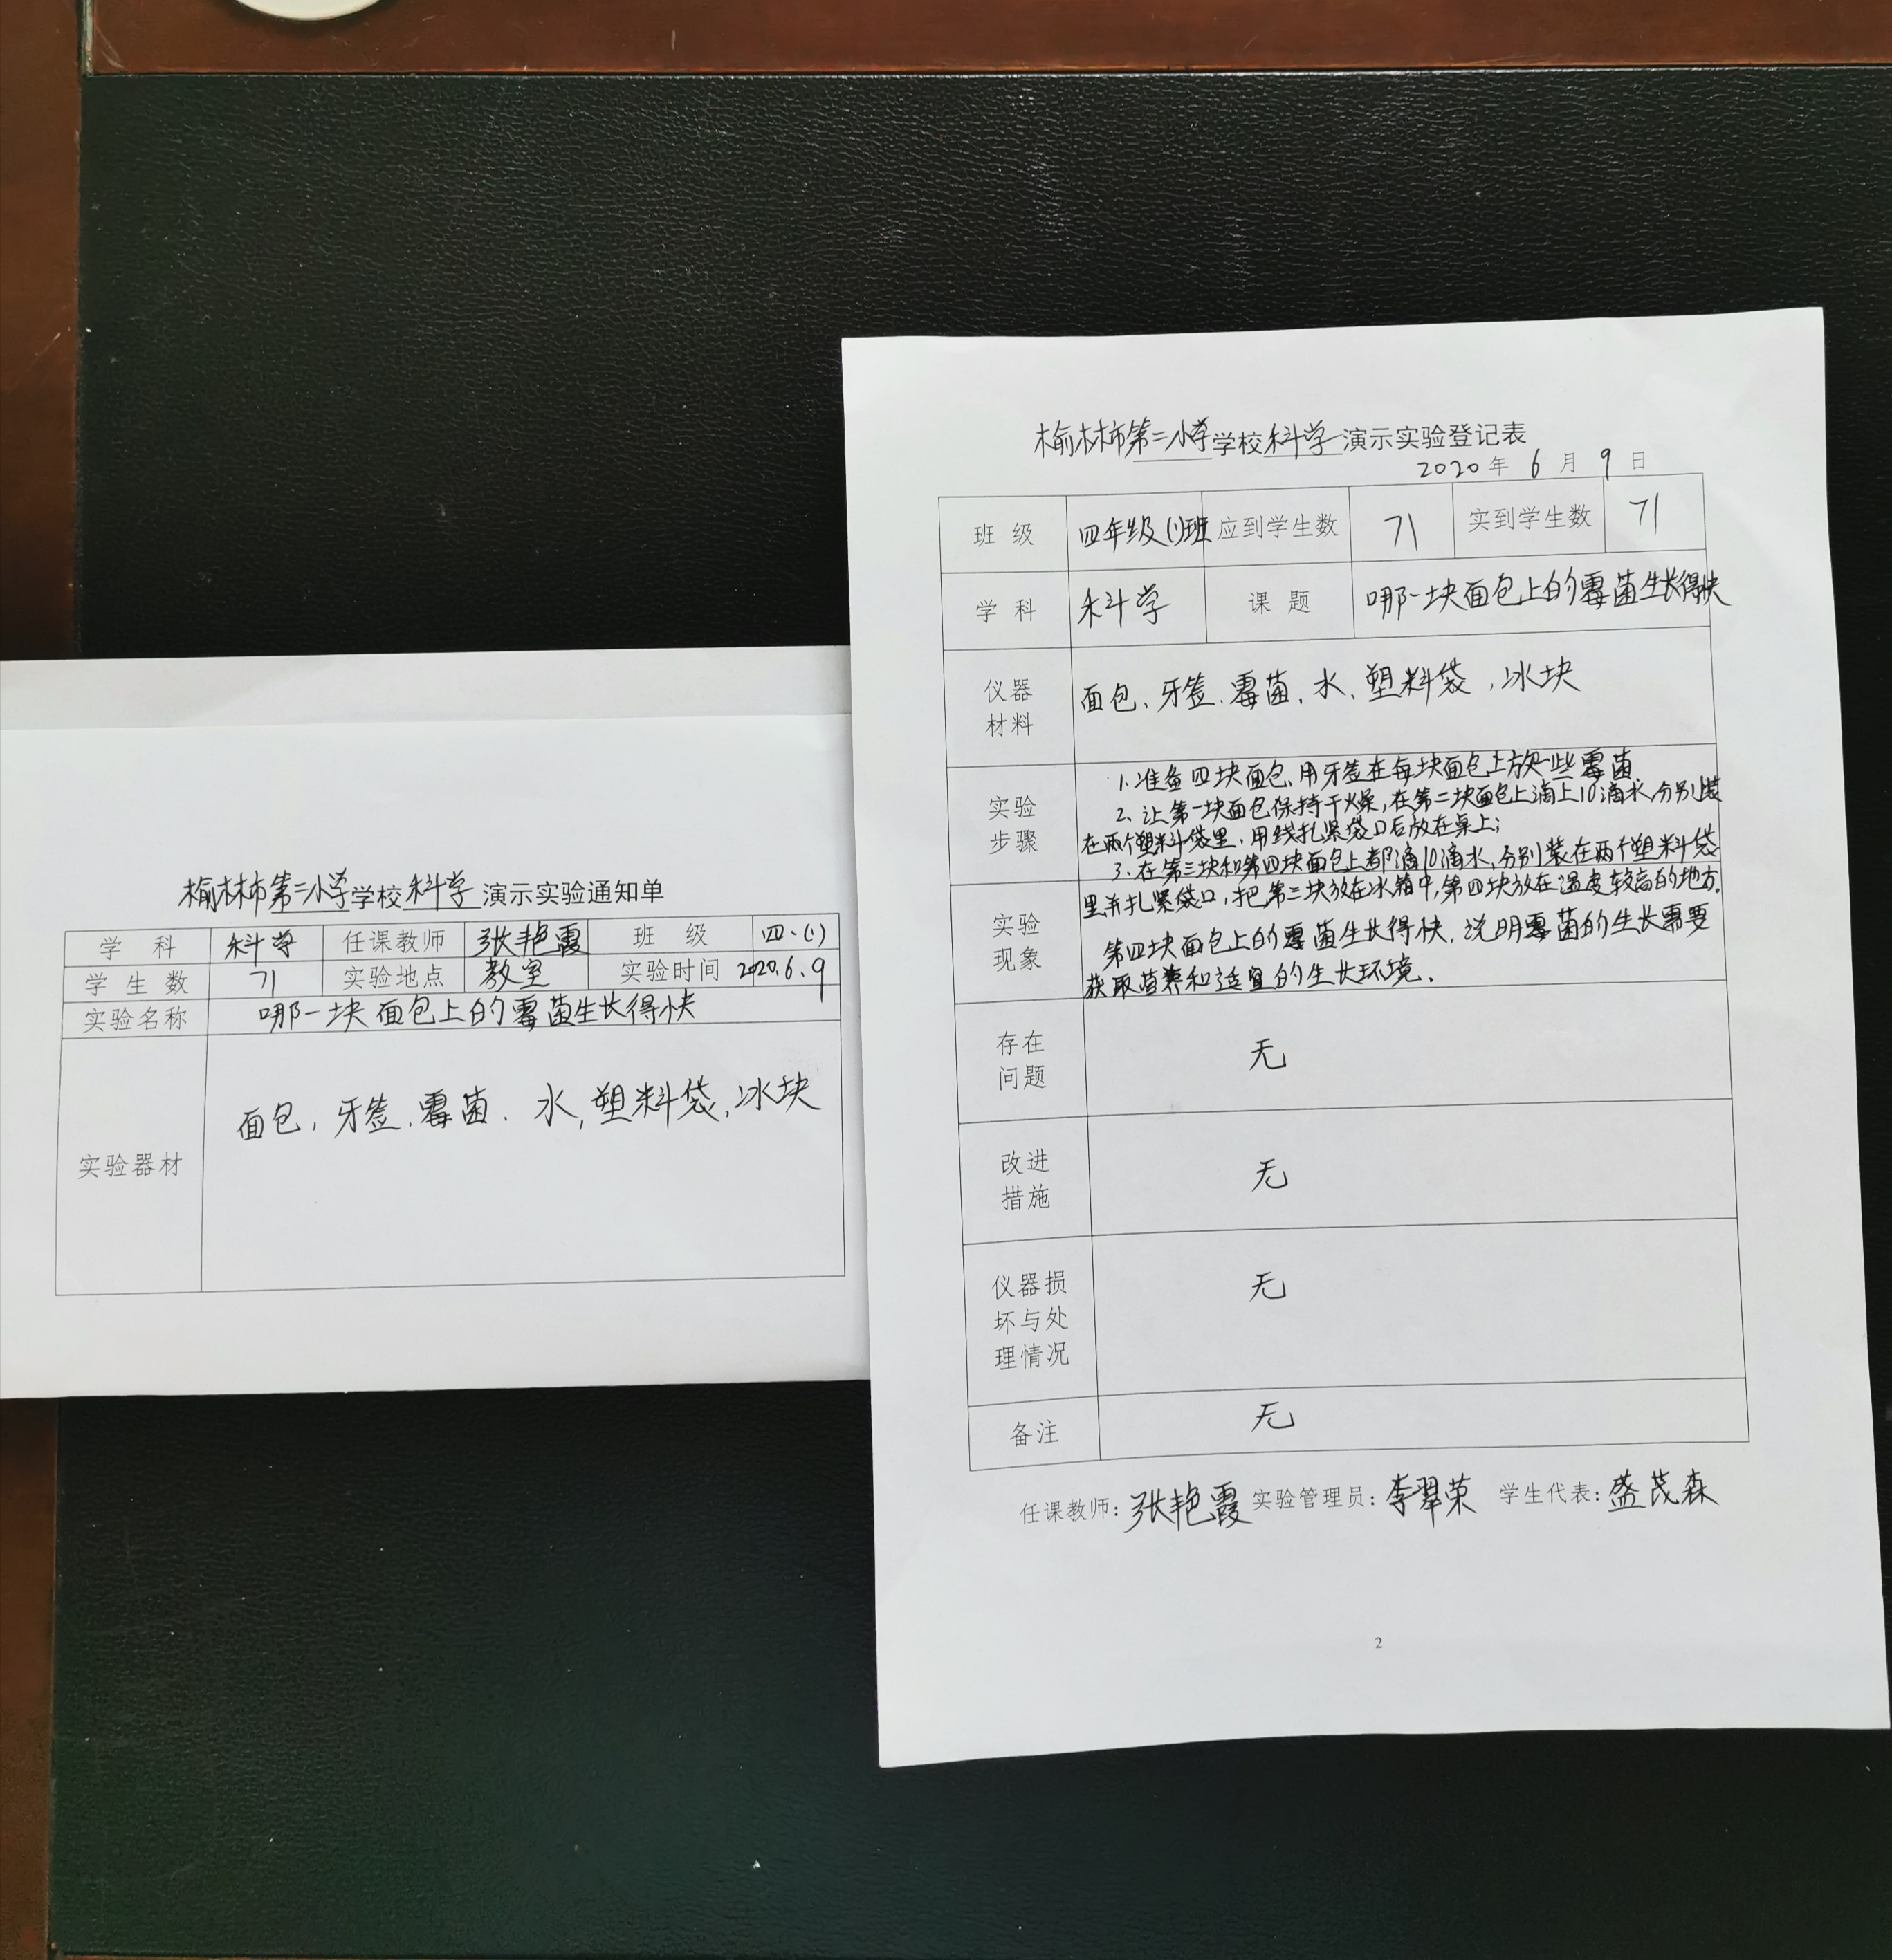 榆林市第二小学学校科学演示实验通知单
学 科 科学 任课教师 张艳霞 班 级 四.(1)
学生数 71 实验地点 教室 实验时间 2020.6.9
实验名称 哪一块面包上的霉菌生长得快
实验器材 面包,牙签.霉菌.水,塑料袋,冰块
榆林市第二小学学校科学演示实验登记表
2020年6月9日
班 级 四年级(1)班 应到学生数 71 实到学生数 71
学 科 科学 课 题 哪一块面包上的霉菌生长得快
仪器
材料
面包.牙签.霉菌.水.塑料袋,冰块
实验
步骤
1.准备四块面包,用牙签在每块面包上放一些霉菌.
2.让第一块面包保持干燥,在第二块面包上滴上10滴水,分别装
在两个塑料袋里,用线扎紧袋口后放在桌上;
3.在第三块和第四块面包上都滴10滴水,分别装在两个塑料袋
里并扎紧袋口,把第三块放在冰箱中,第四块放在温度较高的地方.
实验
现象
第四块面包上的霉菌生长得快,说明霉菌的生长需要
获取营养和适宜的生长环境.
存在
问题
无
改进
措施
无
仪器损
坏与处
理情况
无
备注 无
任课教师:张艳霞 实验管理员:李翠荣 学生代表:盛茂森
2